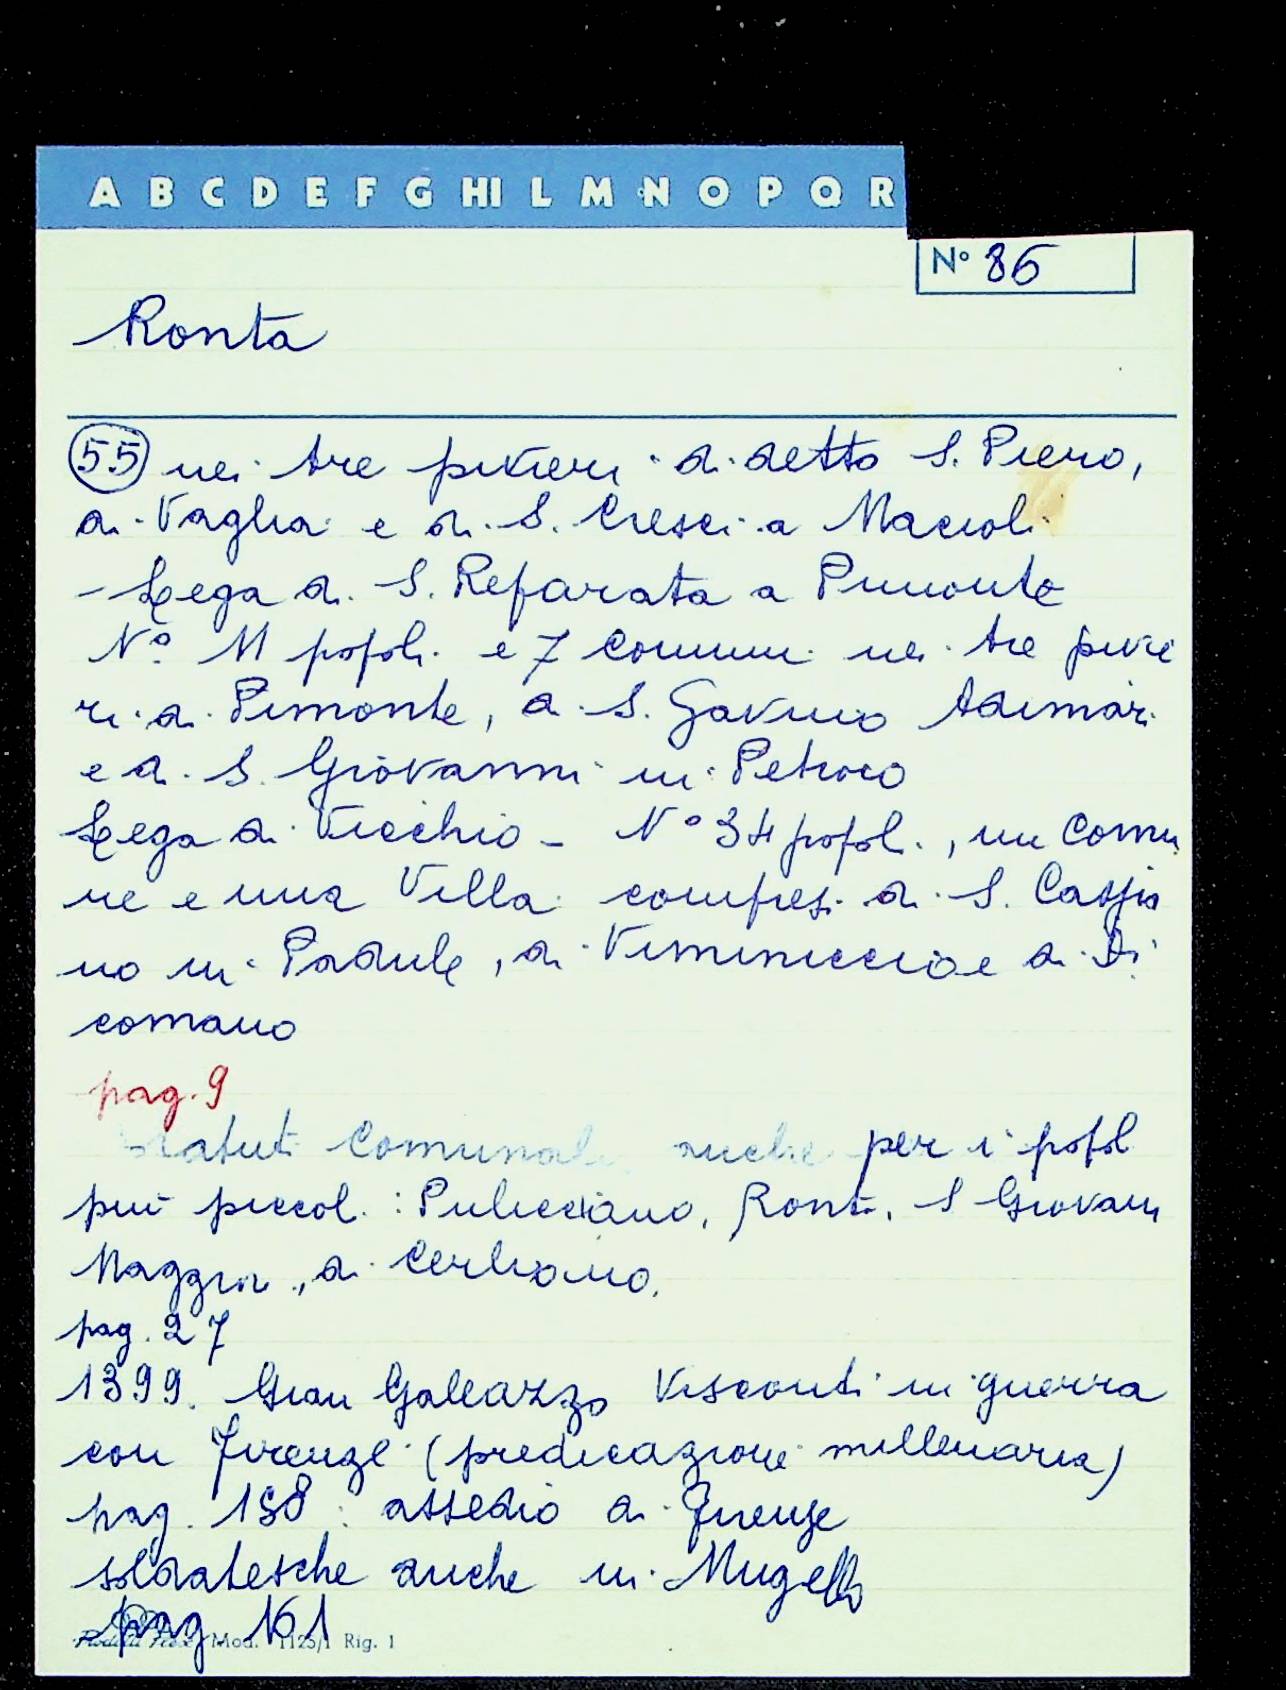 A B C D E F G HI L M N O P Q R
N° 86
Ronta
55 nei tre pivieri di detto S. Piero,
di Vaglia e di S. Cresci a Macioli
- Lega di S. Reparata a Pimonte
N° 11 popoli e 7 Comuni nei tre pivie
ri di Pimonte, di S. Gavino Adimari
e di S. Giovanni in Petroio
Lega di Vicchio - N° 34 popoli, un Comu
ne e una Villa compresi di S. Cassia
no in Padule, di Viminiccio e di Di
comano
pag. 9
Statuti Comunali anche per i popoli
più piccoli: Pulicciano, Ronta, S Giovanni
Maggiore, di Cerliano.
pag. 27
1399. Gian Galeazzo Visconti in guerra
con Firenze (predicazione millenaria)
pag. 158: assedio di Firenze
soldatesche anche in Mugello
pag 161
Mod. 1125/1 Rig. 1